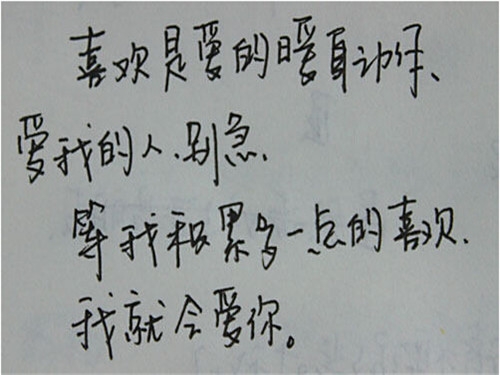 喜欢是爱的暖身动作、
爱我的人、别急、
等我积累多一点的喜欢、
我就会爱你。